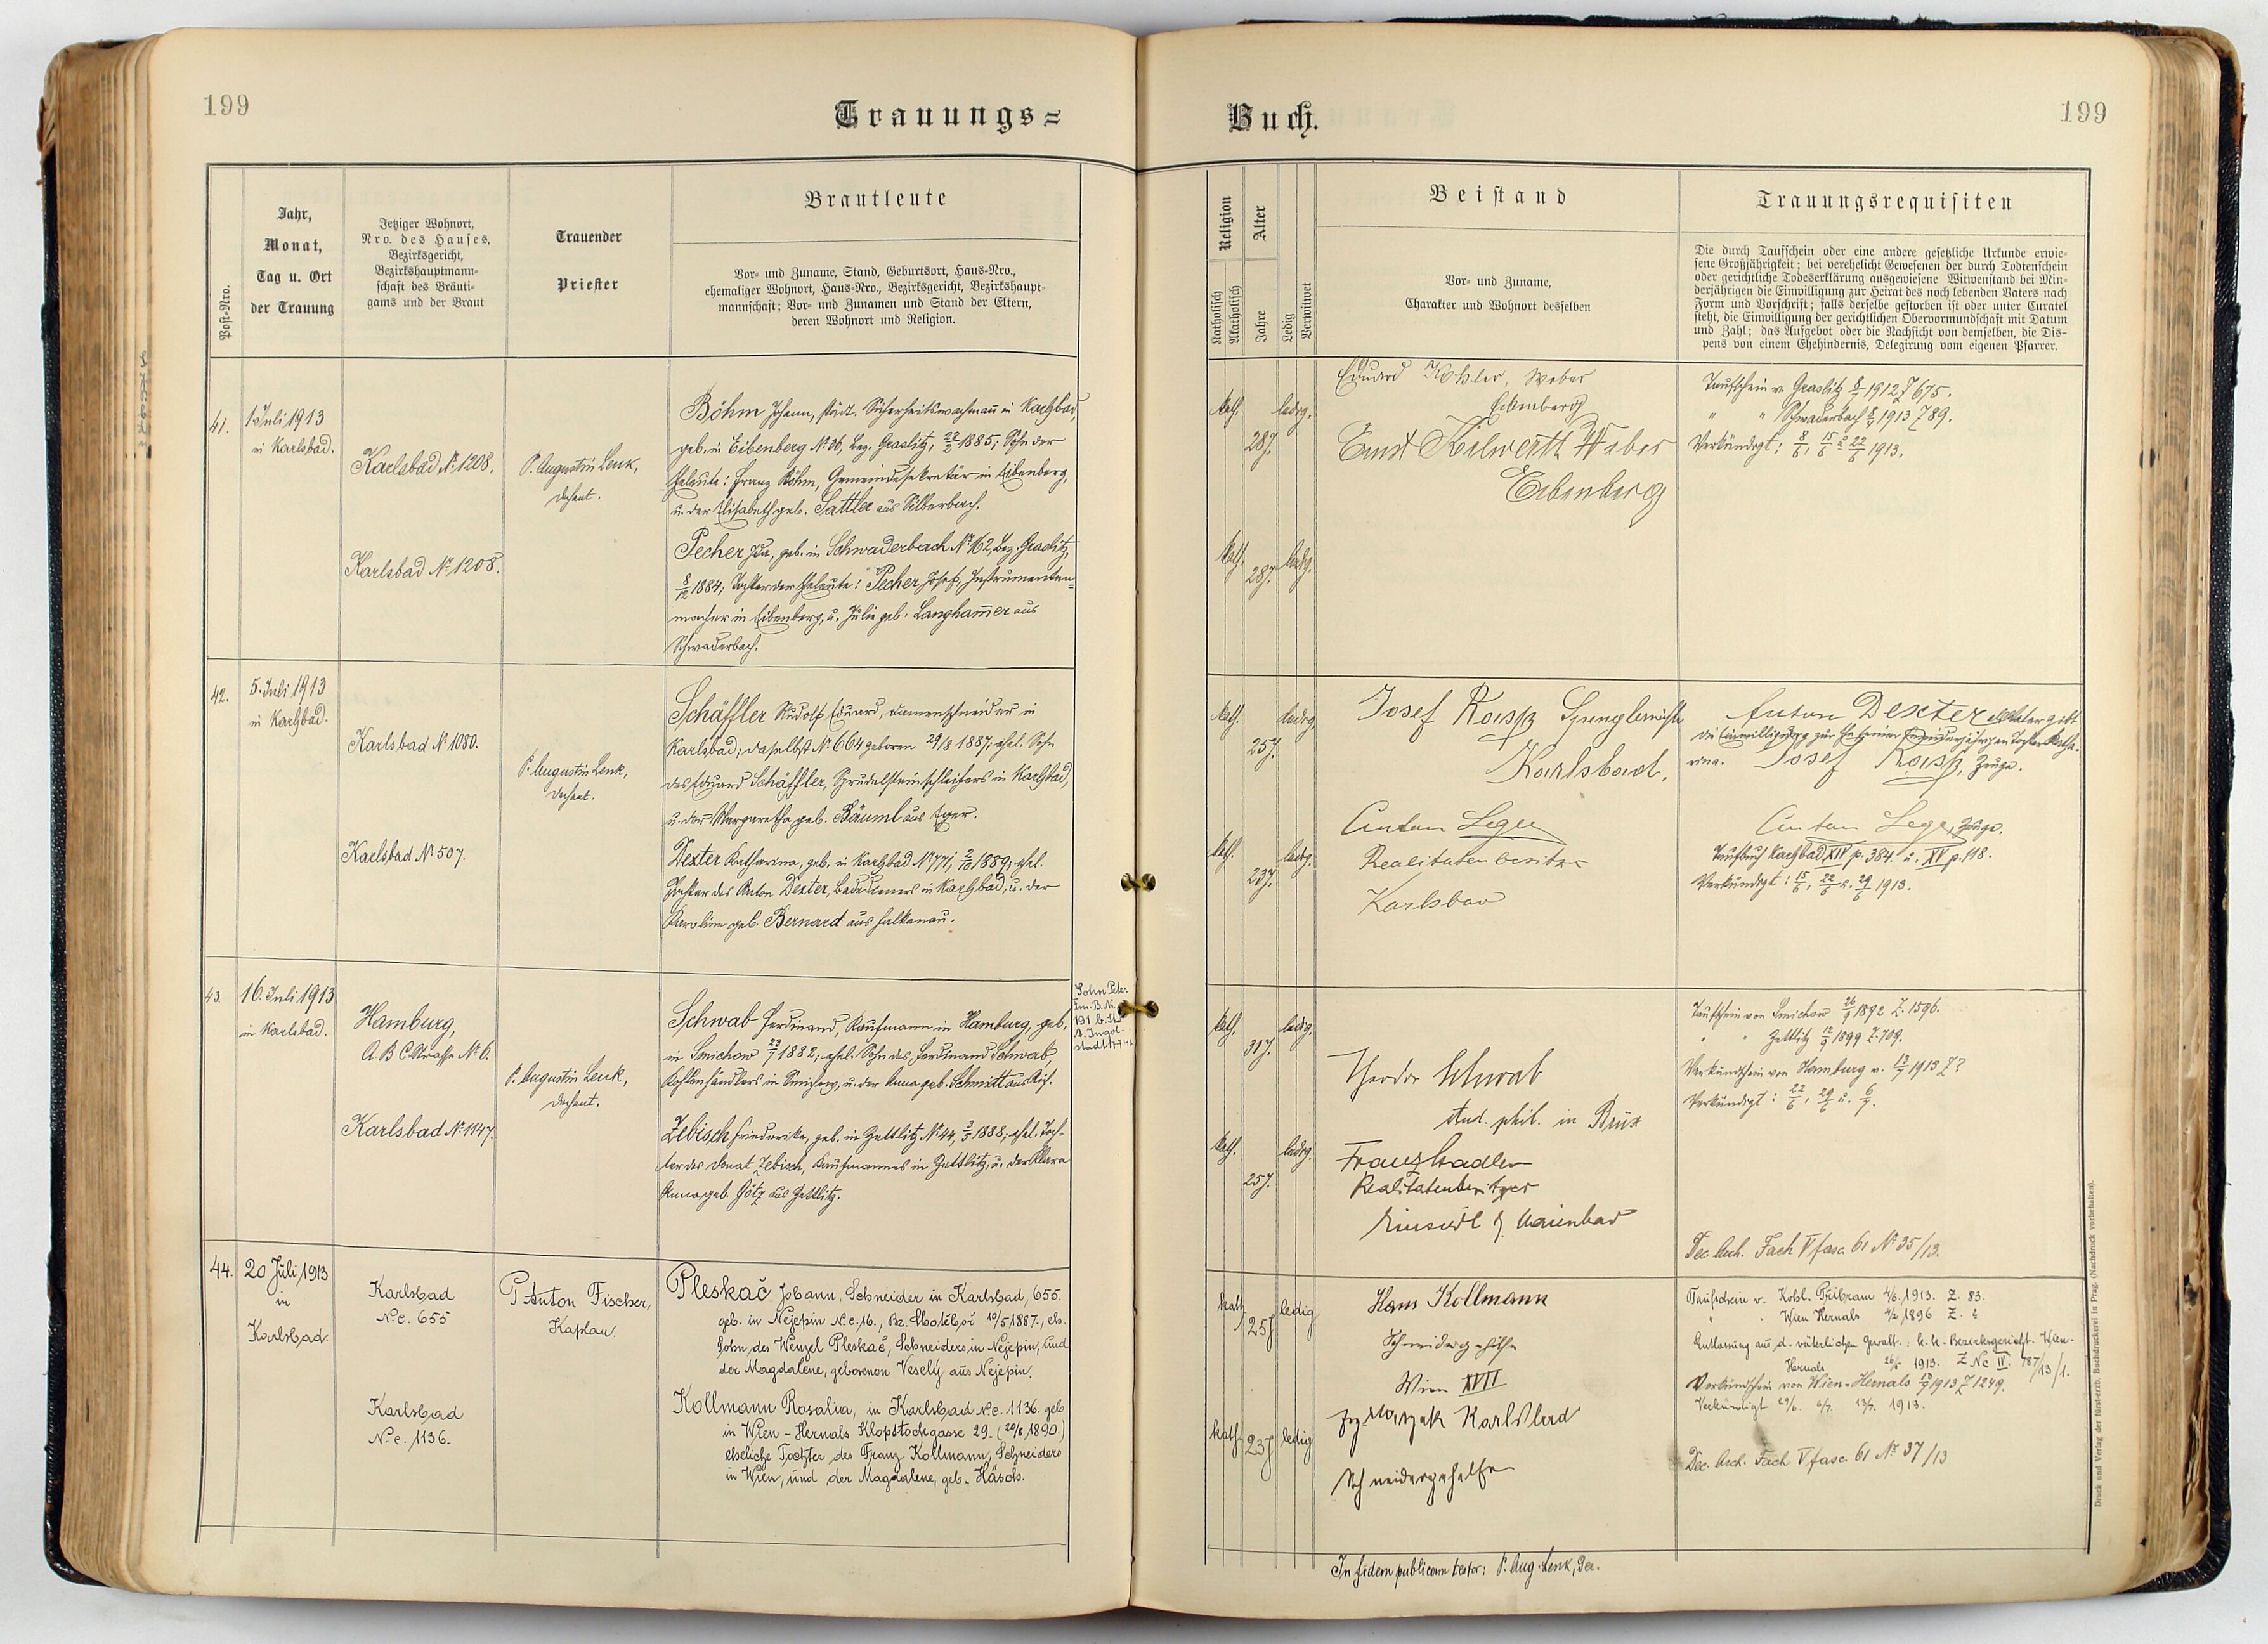 199
Trauungs=
Post-Nro.
Jahr,
Monat,
Tag u. Ort
der Trauung
Jetziger Wohnort,
Nro. des Hauses,
Bezirksgericht,
Bezirkshauptmann-
schaft des Bräuti-
gams und der Braut
Trauender
Priester
Brautleute
Vor- und Zuname, Stand, Geburtsort, Haus-Nro.,
ehemaliger Wohnort, Haus-Nro., Bezirksgericht, Bezirkshaupt-
mannschaft; Vor- und Zunamen und Stand der Eltern,
deren Wohnort und Religion.
41.
1. Juli 1913
in Karlsbad.
Karlsbad No. 1208.
Karlsbad No. 1208.
P. Augustin Lenk,
Dechant.
Böhm Johann, städt. Sicherheitswachmann in Karlsbad,
geb. in Eibenberg No. 26, Bez. Graslitz, 1885; Sohn der
Eheleute: Franz Böhm, Gemeindesekretär in Eibenberg,
u. der Elisabeth geb. Sattler aus Silberbach.
Pecher Ida, geb. in Schwaderbach No. 162, Bez. Graslitz,
8/12 1884; Tochter der Eheleute: Pecher Josef, Instrumenten=
macher in Eibenberg, u. Julie geb. Langhammer aus
Schwaderbach.
42.
5. Juli 1913
in Karlsbad.
Karlsbad No. 1080.
Karlsbad No. 507.
P. Augustin Lenk,
Dechant.
Schäffler Rudolf Eduard, Damenschneider in
Karlsbad; daselbst No. 664 geboren 29/8 1887; ehel. Sohn
des Eduard Schäffler, Sprudelsteinschleifers in Karlsbad,
u. der Margaretha geb. Bäuml aus Eger.
Dexter Katharina, geb. in Karlsbad No. 771; 2/10 1889; ehel.
Tochter des Anton Dexter, Badedieners in Karlsbad, u. der
Karoline geb. Bernard aus Falkenau.
43.
16. Juli 1913
in Karlsbad.
Hamburg,
A B C Strasse No. 6.
Karlsbad No. 1147.
P. Augustin Lenk,
Dechant.
Schwab Ferdinand, Kaufmann in Hamburg, geb.
in Smichow 23/7 1882; ehel. Sohn des Ferdinand Schwab,
Kohlenhändlers in Smichow, u. der Anna geb. Schmitt aus
Zebisch Friederika, geb. in Zettlitz No. 44, 3/5 1888; ehel. Toch-
ter des Donat Zebisch, Kaufmannes in Zettlitz, u. der Klara
Anna geb. Götz aus Zettlitz.
Sohn Peter
191
Ingol-
stadt
44.
20 Juli 1913
in
Karlsbad.
Karlsbad
N. c. 655
Karlsbad
N. c. 1136.
P Anton Fischer,
Kaplan.
Pleskač Johann, Schneider in Karlsbad, 655.
geb. in Nejepin N. c. 16., Bz. Chotěboř 10/5 1887., eh.
Sohn des Wenzel Pleskač, Schneiders in Nejepin, und
der Magdalene, geborenen Veselý aus Nejepin.
Kollmann Rosalia, in Karlsbad N. c. 1136. geb
in Wien - Hernals Klopstockgasse 29. (20/6 1890.)
eheliche Tochter des Franz Kollmann, Schneiders
in Wien, und der Magdalene, geb. Käsch.
Buch.
199
Religion
Katholisch
Akatholisch
Alter
Jahre
Ledig
Verwitwet
Beistand
Vor- und Zuname,
Charakter und Wohnort desselben
Trauungsrequisiten
Die durch Taufschein oder eine andere gesetzliche Urkunde erwie-
sene Großjährigkeit; bei verehelicht Gewesenen der durch Todtenschein
oder gerichtliche Todeserklärung ausgewiesene Witwenstand bei Min-
derjährigen die Einwilligung zur Heirat des noch lebenden Vaters nach
Form und Vorschrift; falls derselbe gestorben ist oder unter Curatel
steht, die Einwilligung der gerichtlichen Obervormundschaft mit Datum
und Zahl; das Aufgebot oder die Nachsicht von demselben, die Dis-
pens von einem Ehehindernis, Delegirung vom eigenen Pfarrer.
kath.
28 J.
ledig.
kath.
28 J.
ledig.
Eduard Kohler, Weber
Eibenberg
Ernst Weber
Eibenberg
Taufschein v. Graslitz 1912 Z 675.
" " Schwaderbach 1913 Z 89.
Verkündigt: 8/6, 15/6 u. 22/6 1913.
kath.
25 J.
ledig.
kath.
23 J.
ledig.
Josef Spenglermstr
Karlsbad.
Anton Leger
Realitätenbesitzer
Karlsbad
Anton Dexter als Vater gibt
die Einwilligung zur Ehe seiner minderjährigen Tochter Katha-
rina. Josef Zeuge.
Anton Leger, Zeuge.
Taufbuch Karlsbad XIV p. 384. u. XV p. 118.
Verkündigt: 15/6, 22/6 u. 29/6 1913.
kath.
31 J.
ledig.
kath.
25 J.
ledig.
Theodor Schwab
stud. phil. in Brüx
Franz Stadler
Realitätenbesitzer
Einsiedl b. Marienbad
Taufschein von Smichow 26/9 1892 Z. 1596.
" " Zettlitz 12/9 1899 Z. 709.
Verkündschein von Hamburg v. 13/7 1913 Z ?
Verkündigt: 22/6, 29/6 u. 6/7.
Dec. Arch. Fach V fasc. 61 No. 35/13.
kath
25 J
ledig
kath
23 J
ledig
Hans Kollmann
Schneidergehilfe
Wien XVII
Karlsbad
Schneidergehilfe
Taufschein v. Kohl. Přibram 4/6. 1913. Z. 83.
" " Wien Hernals 1896 Z. ?
Entlassung aus d. väterlichen Gewalt.: k. k. Bezirksgericht Wien-
Hernals 1913. Z Nc IV. 787/13/1.
Verkündschein von Wien-Hernals 13/7 1913 Z 1249.
Verkündigt 29/6. 6/7. 13/7. 1913.
Dec. Arch. Fach V fasc. 61 No. 37/13
In fidem publicam testor: P. Aug. Lenk, Dec.
Druck und Verlag der fürst-erzb. Buchdruckerei in Prag. (Nachdruck vorbehalten).